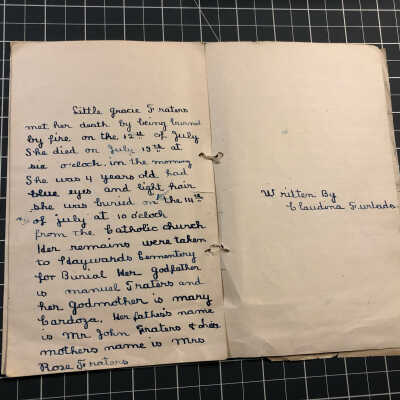 Little gracie Fraters
met her death by being burned
by fire on the 12th of July
She died on July 13th at
sie o'clock, in the morning
She was 4 years old had
blue eyes and light hair
she was buried on the 14th
of july at 10 oclock
from the Catholic church
Her remains were taken
to Haywards Cementory
for Burial Her godfather
is manuel Fraters and
her Godmother is mary
Cardoza. Her father's name
is Mr John Fraters & her
mothers name is Mrs
Rose Fraters
Written By
Claudina Furtado